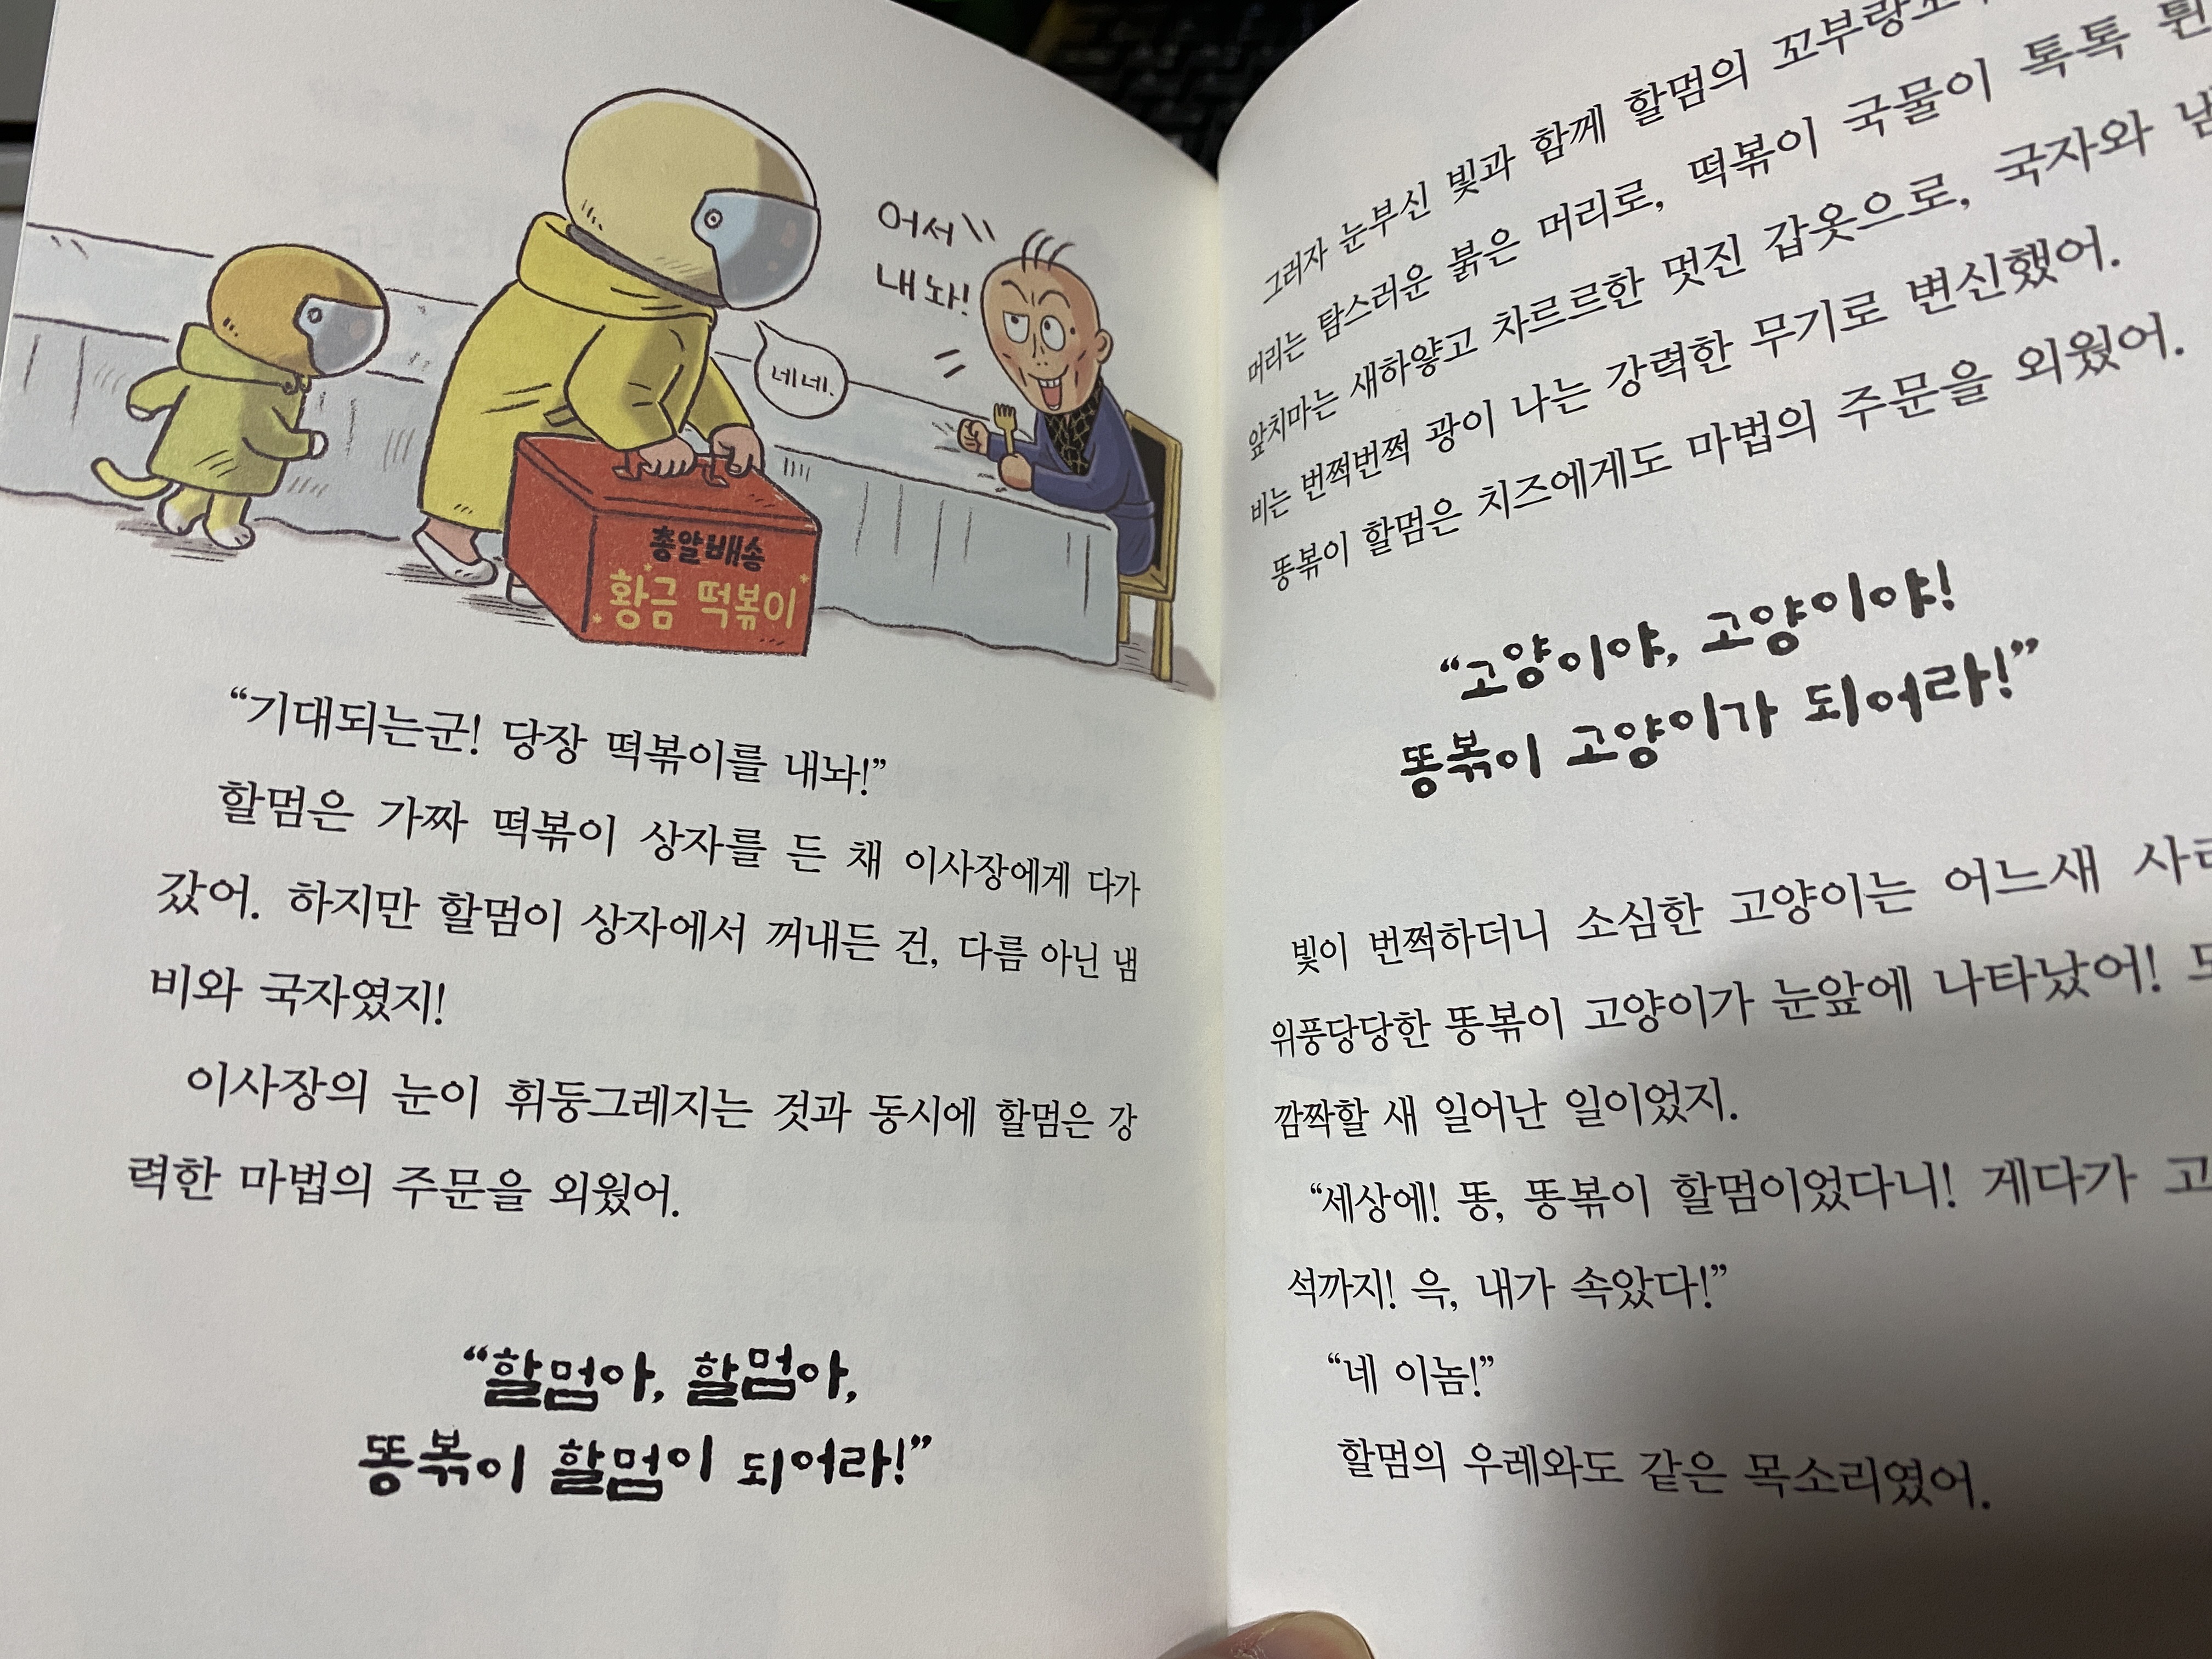 어서
내놔!
네네.
총알배송
황금 떡볶이
“기대되는군! 당장 떡볶이를 내놔!”
할멈은 가짜 떡볶이 상자를 든 채 이사장에게 다가
갔어. 하지만 할멈이 상자에서 꺼내든 건, 다름 아닌 냄
비와 국자였지!
이사장의 눈이 휘둥그레지는 것과 동시에 할멈은 강
력한 마법의 주문을 외웠어.
“할멈아, 할멈아,
똥볶이 할멈이 되어라!”
그러자 눈부신 빛과 함께 할멈의
머리는 탐스러운 붉은 머리로, 떡볶이 국물이 톡톡 튄
앞치마는 새하얗고 차르르한 멋진 갑옷으로, 국자와 냄
비는 번쩍번쩍 광이 나는 강력한 무기로 변신했어.
똥볶이 할멈은 치즈에게도 마법의 주문을 외웠어.
“고양이야, 고양이야!
똥볶이 고양이가 되어라!”
빛이 번쩍하더니 소심한 고양이는 어느새
위풍당당한 똥볶이 고양이가 눈앞에 나타났어!
깜짝할 새 일어난 일이었지.
“세상에! 똥, 똥볶이 할멈이었다니! 게다가
석까지! 윽, 내가 속았다!”
“네 이놈!”
할멈의 우레와도 같은 목소리였어.